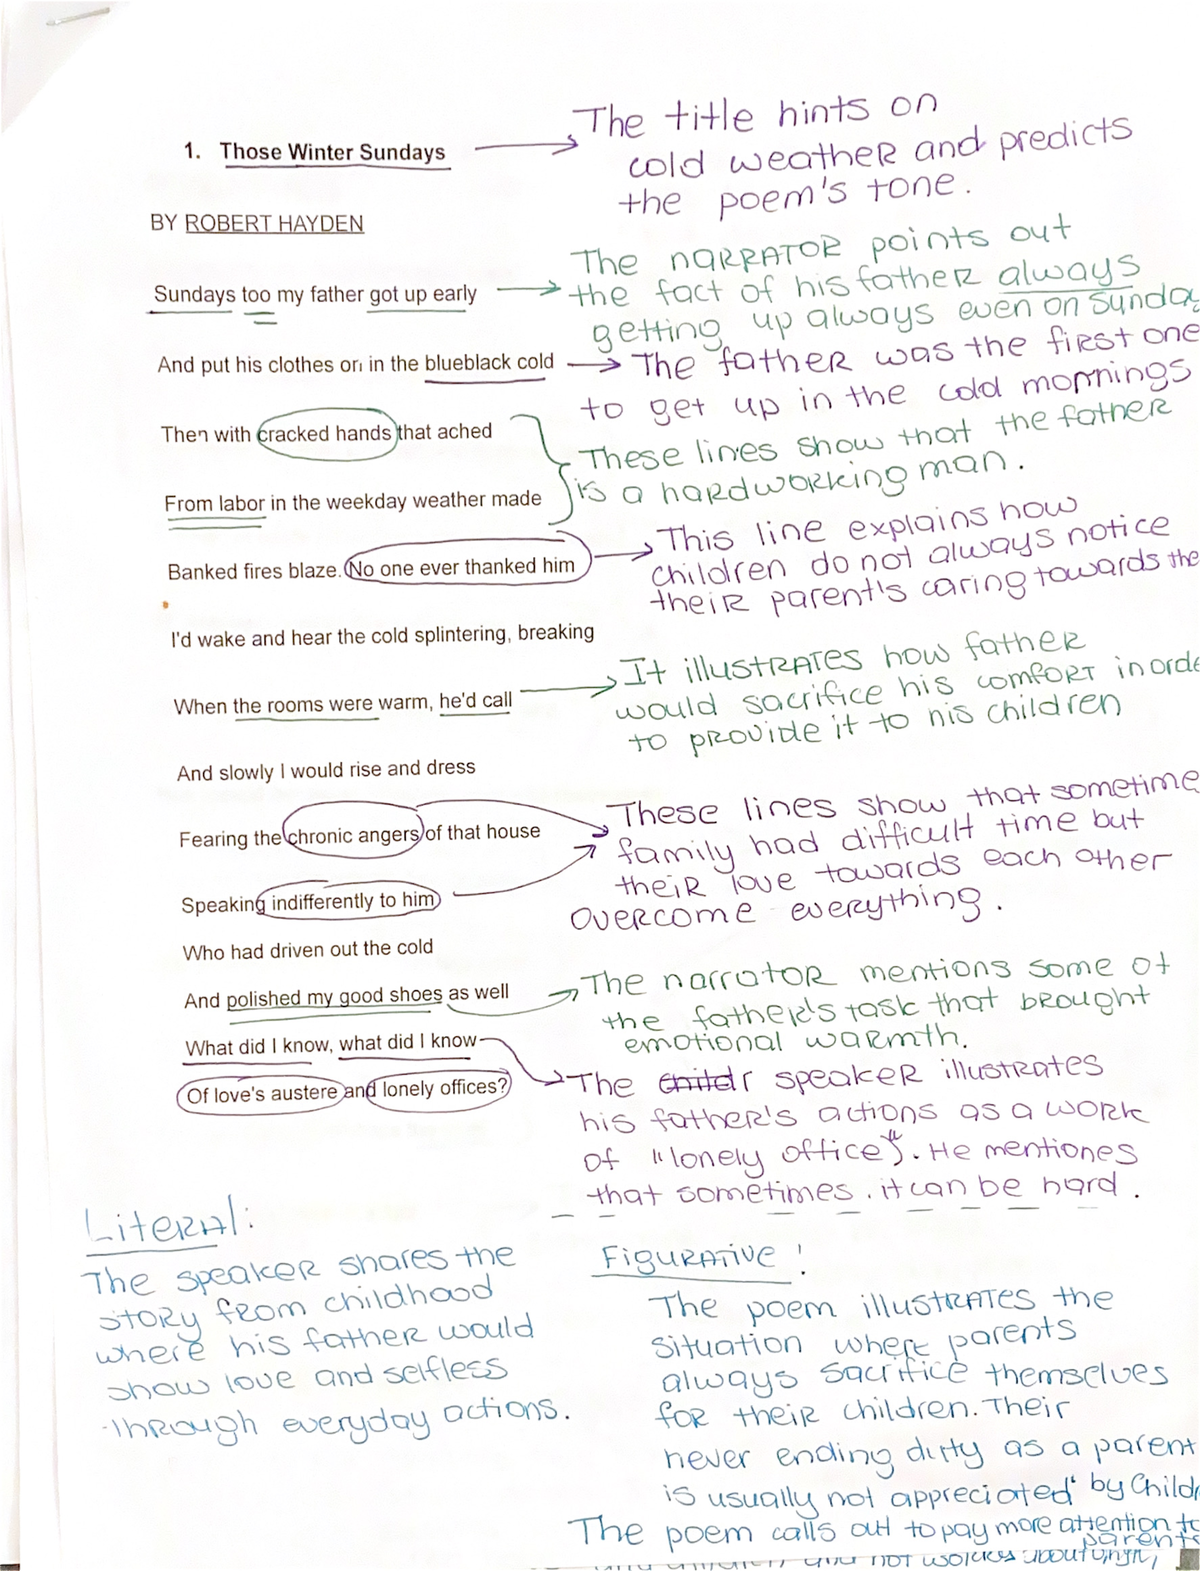 The title hints on
1. Those Winter Sundays
cold weather and predicts
the poem's tone.
BY ROBERT HAYDEN
The narrator points out
Sundays too my father got up early
the fact of his father always
getting up always even on Sunda
And put his clothes on in the blueblack cold
The father was the first one
to get up in the cold mornings
Then with cracked hands that ached
These lines show that the father
is a hardworking man.
From labor in the weekday weather made
Banked fires blaze. No one ever thanked him
This line explains how
children do not always notice
their parent's caring towards the
I'd wake and hear the cold splintering, breaking
When the rooms were warm, he'd call
It illustrates how father
would sacrifice his comfort in orde
to provide it to his children
And slowly I would rise and dress
Fearing the chronic angers of that house
These lines show that sometime
family had difficult time but
their love towards each other
overcome everything.
Speaking indifferently to him
Who had driven out the cold
And polished my good shoes as well
The narrator mentions some of
the father's task that brought
emotional warmth.
What did I know, what did I know
Of love's austere and lonely offices?
The speaker illustrates
his father's actions as a work
of "lonely office". He mentiones
that sometimes it can be hard.
Literal:
The speaker shares the
story from childhood
where his father would
show love and selfless
through everyday actions.
Figurative!
The poem illustrates the
situation where parents
always sacrifice themselves
for their children. Their
never ending duty as a parent
is usually not appreciated by Childr
The poem calls out to pay more attention to
parents
and not